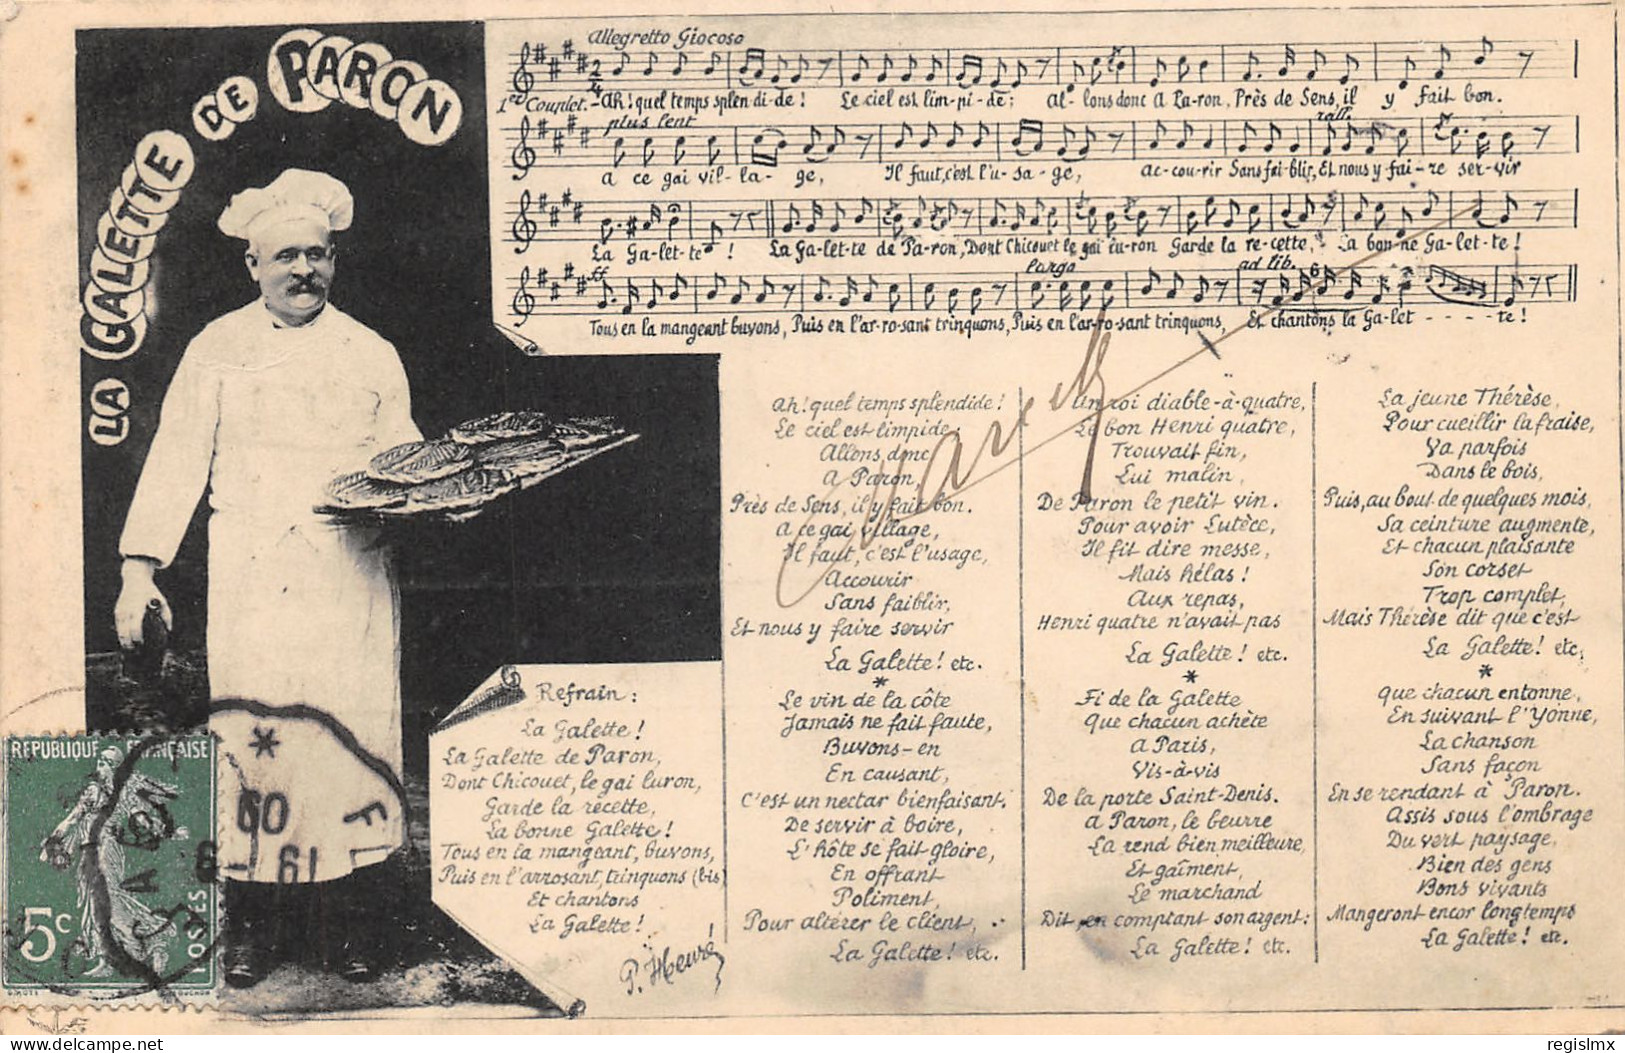 LA GALETTE DE PARON
Allegretto Giocoso
1er Couplet. - Ah! quel temps splen-di-de! Le ciel est lim-pi-de; Al-lons donc A Pa-ron, Près de Sens, il y fait bon.
plus lent
rall.
a ce gai vil-la-ge, Il faut, c'est l'u-sa-ge, ac-cou-rir Sans fai-blir, Et nous y fai-re ser-vir
La Ga-let-te! La Ga-let-te de Pa-ron, Dont Chicouet le gai lu-ron Garde la re-cette, La bon-ne Ga-let-te!
ff
largo
ad lib.
6
Tous en la mangeant buvons, Puis en l'ar-ro-sant trinquons, Puis en l'ar-ro-sant trinquons, Et chantons la Ga-let - - - - te!
Refrain:
La Galette!
La Galette de Paron,
Dont Chicouet, le gai luron,
Garde la recette,
La bonne Galette!
Tous en la mangeant, buvons,
Puis en l'arrosant, trinquons (bis)
Et chantons
La Galette!
P. Heuré
Ah! quel temps splendide!
Le ciel est limpide;
Allons donc
A Paron,
Près de Sens, il y fait bon.
A ce gai village,
Il faut, c'est l'usage,
Accourir
Sans faiblir,
Et nous y faire servir
La Galette! etc.
*
Le vin de la côte
Jamais ne fait faute,
Buvons-en
En causant,
C'est un nectar bienfaisant.
De servir à boire,
L'hôte se fait gloire,
En offrant
Poliment,
Pour altérer le client,
La Galette! etc.
Un roi diable-à-quatre,
Le bon Henri quatre,
Trouvait fin,
Lui malin,
De Paron le petit vin.
Pour avoir Lutèce,
Il fit dire messe,
Mais hélas!
Aux repas,
Henri quatre n'avait pas
La Galette! etc.
*
Fi de la Galette
Que chacun achète
A Paris,
Vis-à-vis
De la porte Saint-Denis.
A Paron, le beurre
La rend bien meilleure,
Et gaîment,
Le marchand
Dit, en comptant son argent:
La Galette! etc.
La jeune Thérèse,
Pour cueillir la fraise,
Va parfois
Dans le bois,
Puis, au bout de quelques mois,
Sa ceinture augmente,
Et chacun plaisante
Son corset
Trop complet,
Mais Thérèse dit que c'est
La Galette! etc.
*
Que chacun entonne,
En suivant l'Yonne,
La chanson
Sans façon
En se rendant à Paron.
Assis sous l'ombrage
Du vert paysage,
Bien des gens
Bons vivants
Mangeront encor longtemps
La Galette! etc.
REPUBLIQUE FRANÇAISE
5c
POSTES
delcampe.net
regislmx